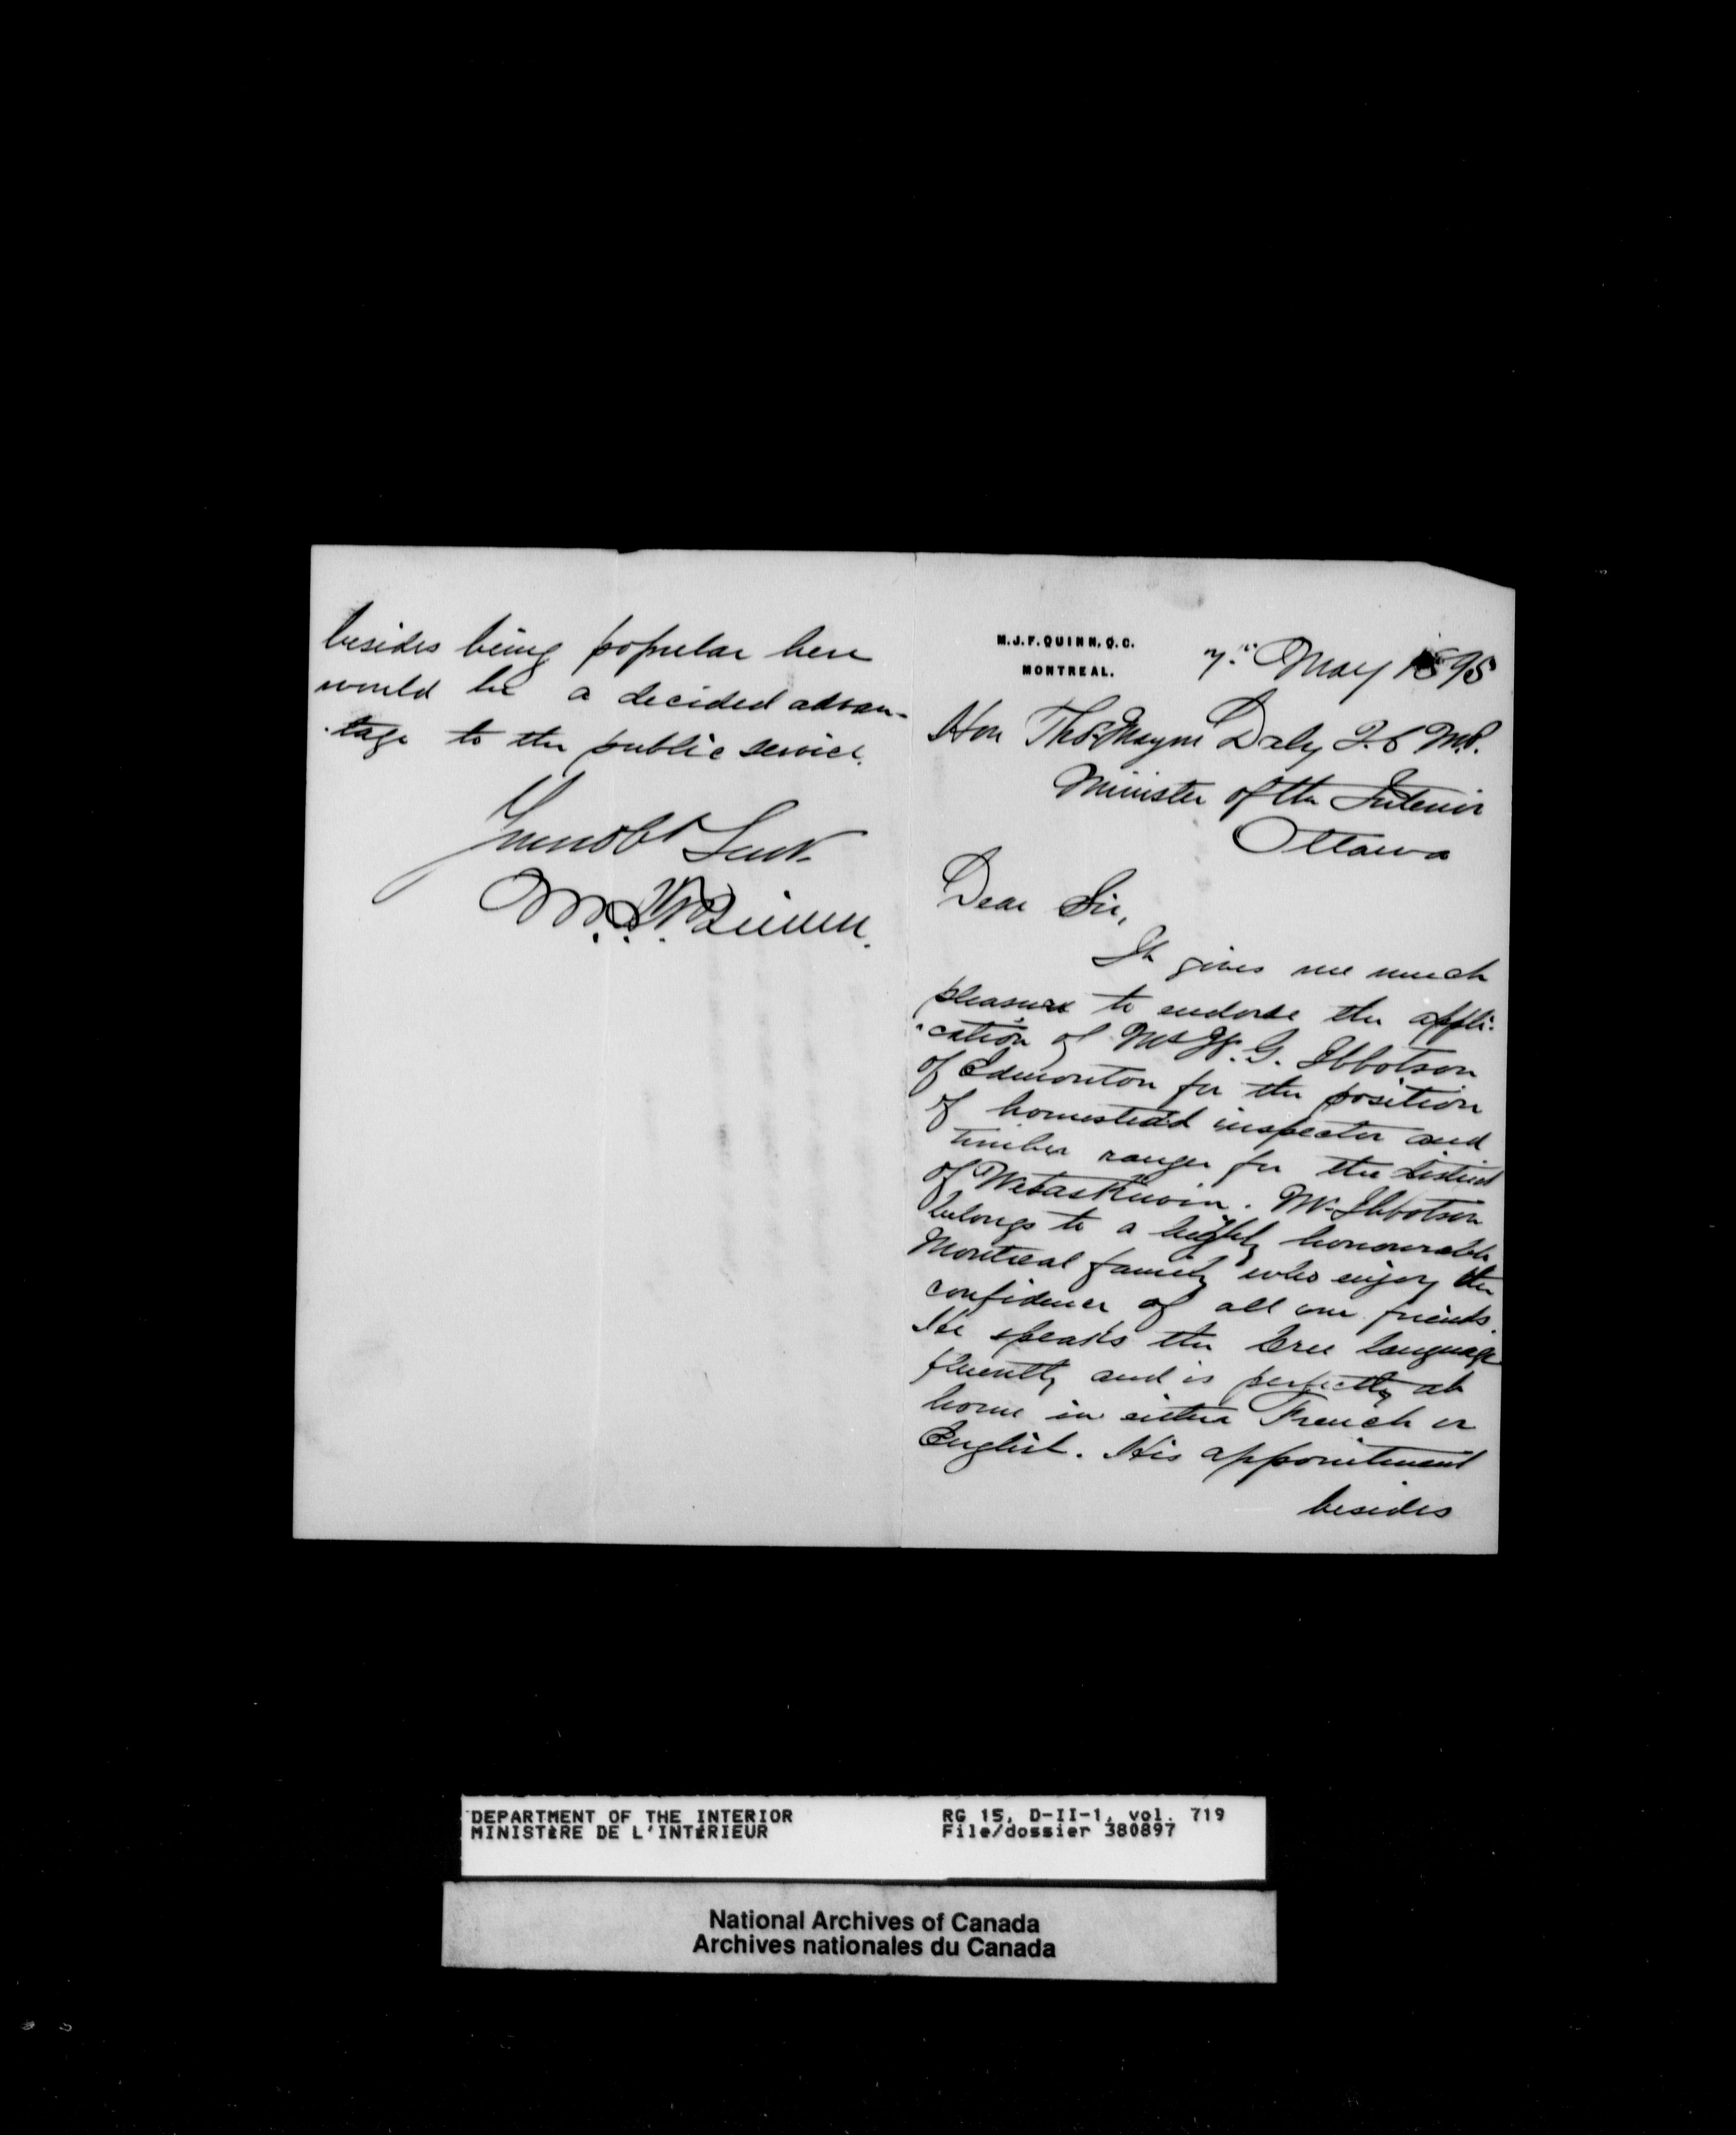 M.J.F. QUINN, Q.C.
MONTREAL.
7th May 1895
Hon Thos Mayne Daly Q.C M.P.
Minister of the Interior
Ottawa
Dear Sir,
It gives me much
pleasure to endorse the appli-
-cation of Mr W. G. Ibbotson
of Edmonton for the position
of homestead inspector and
timber ranger for the district
of Wetaskiwin. Mr Ibbotson
belongs to a highly honourable
Montreal family who enjoy the
confidence of all our friends.
He speaks the Cree language
fluently and is perfectly at
home in either French or
English. His appointment
besides
besides being popular here
would be a decided advan-
-tage to the public service.
Your obt Servt
M.J.F. Quinn.
DEPARTMENT OF THE INTERIOR
MINISTÈRE DE L'INTÉRIEUR
RG 15, D-II-1, vol. 719
File/dossier 380897
National Archives of Canada
Archives nationales du Canada